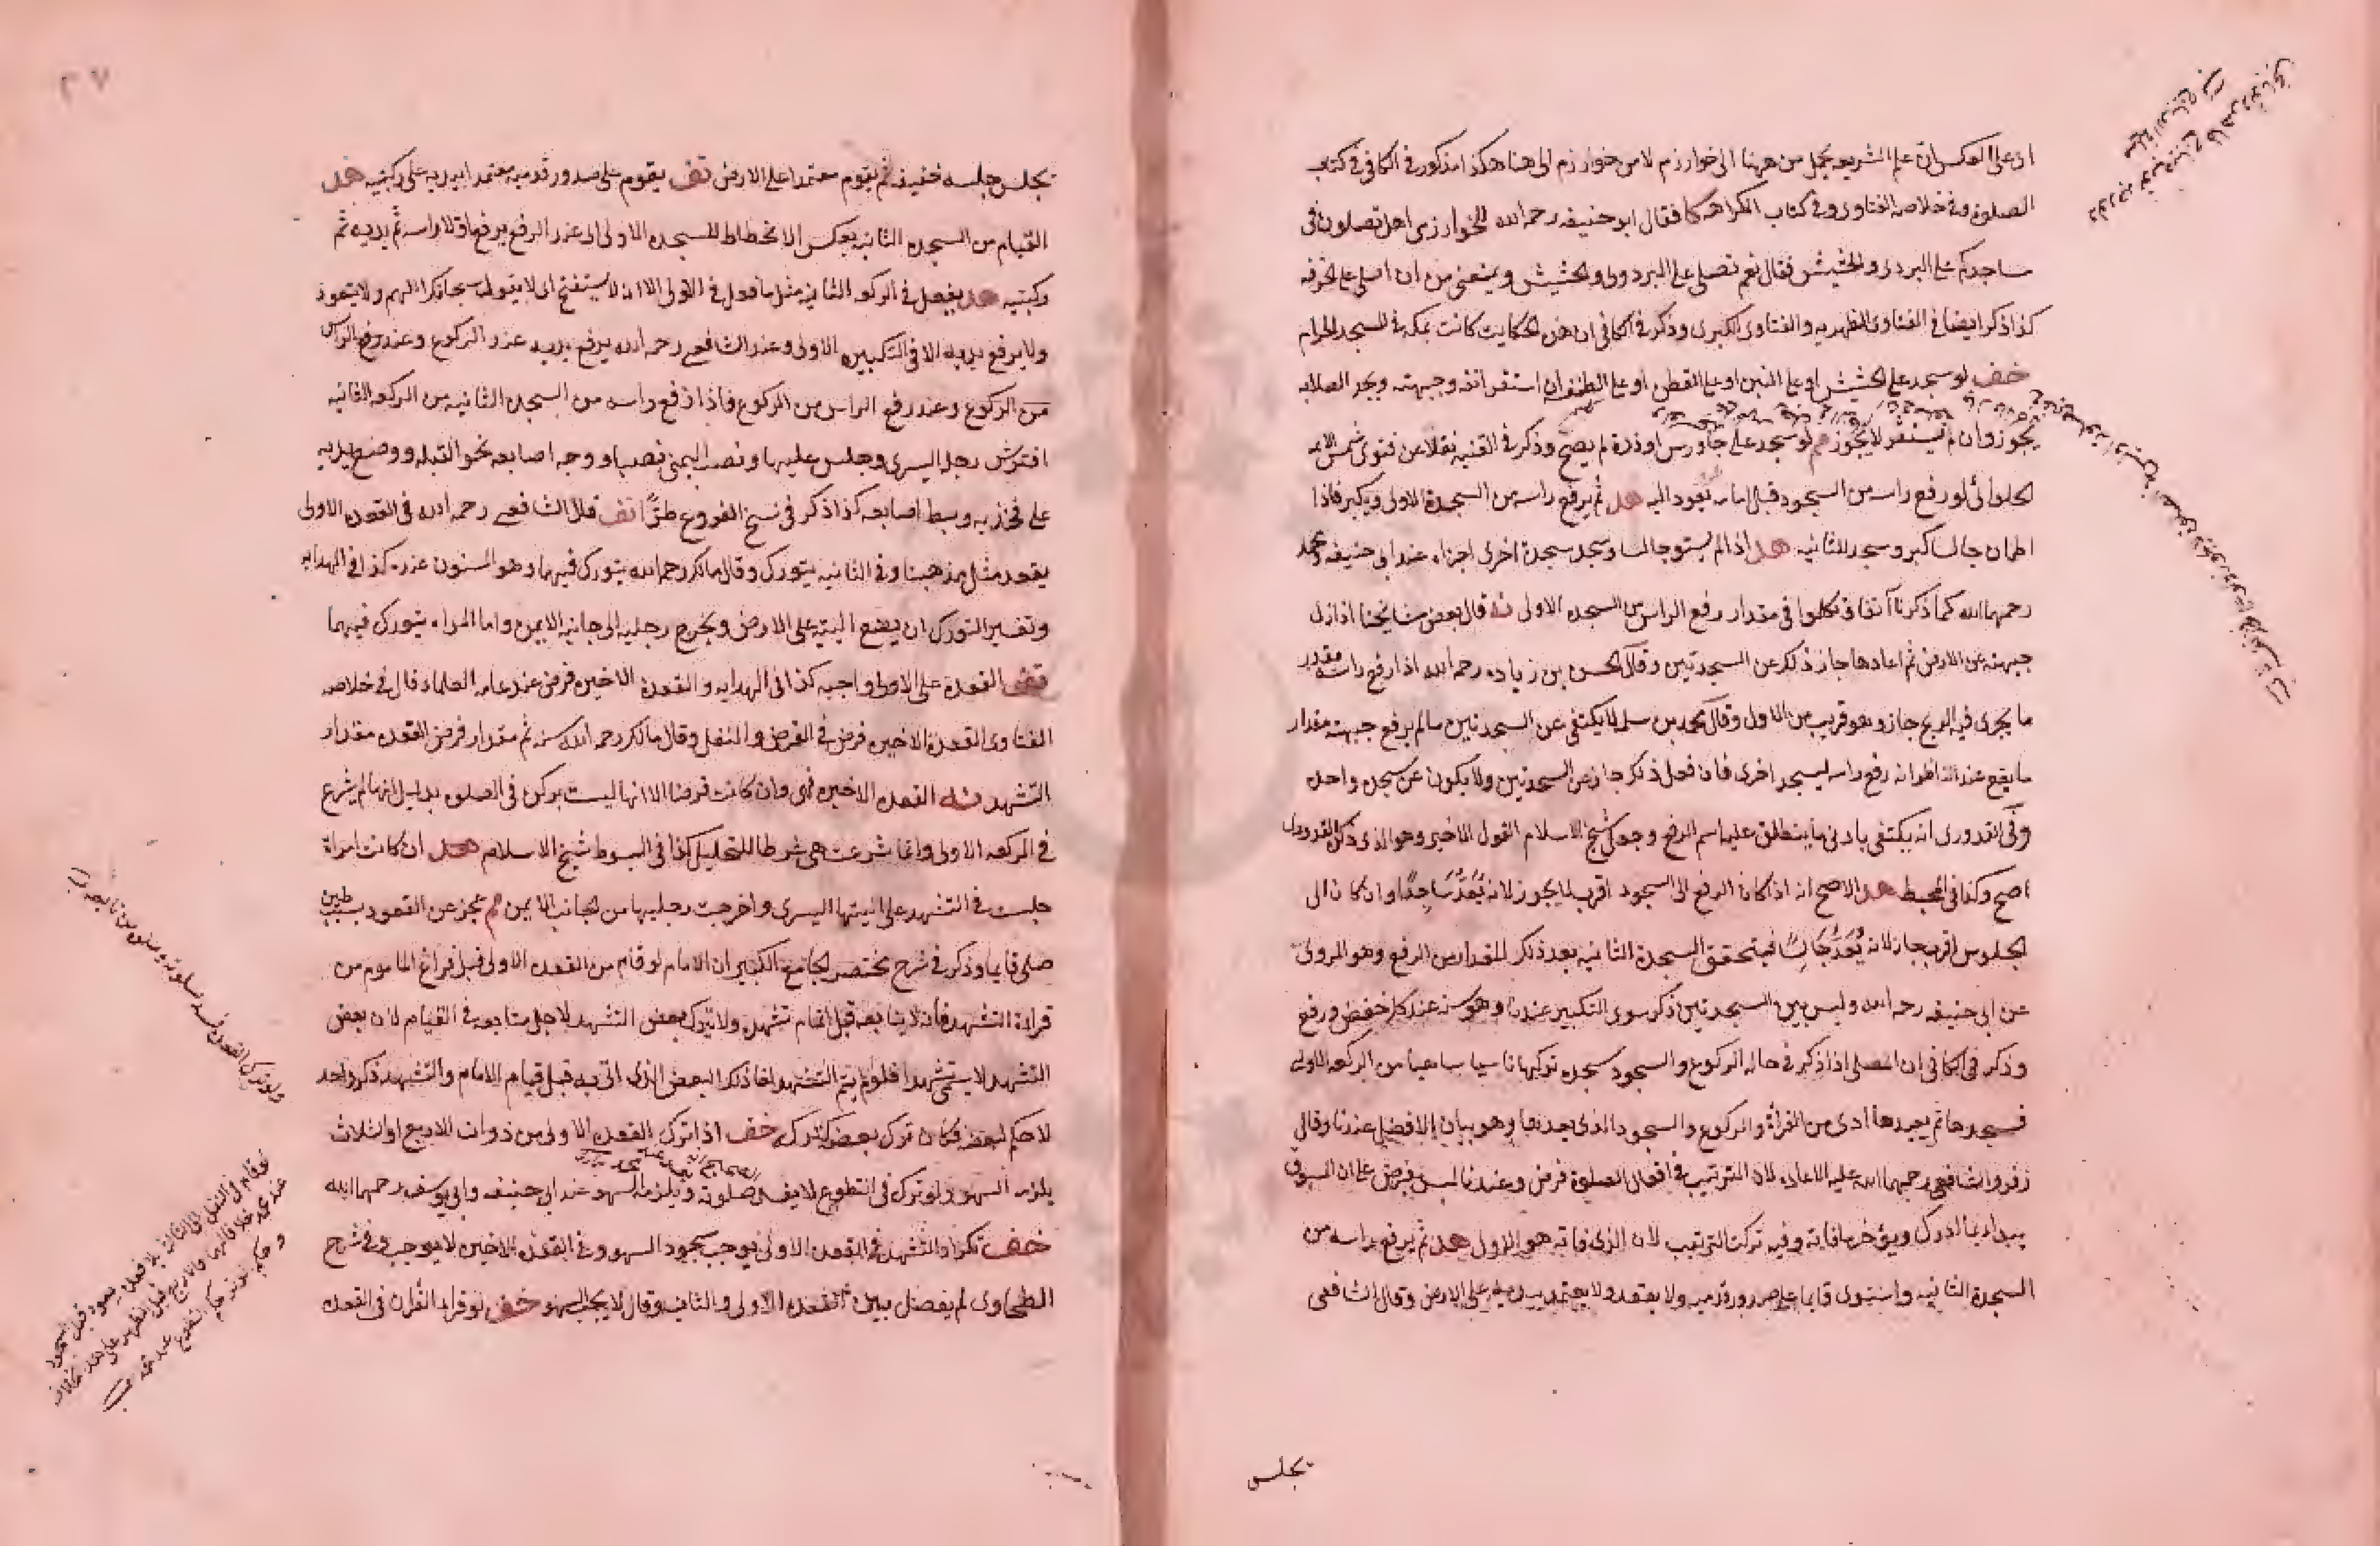 اى على العكس ان علم الشريعه يحمل من ههنا الى خوارزم لا من خوارزم الى هنا هكذا مذكور فى الكافى فى كتاب
الصلوة وفى خلاصه الفتاوى وفى كتاب الكراهه كما فقال ابو حنيفه رحمه الله للخوارزمى اهل تصلون فى
مساجدكم على البردى والحشيش فقال نعم تصلى على البردى والحشيش ويمنعنى من ان اصلى على الخرقه
كذا ذكر ايضا فى الفتاوى الظهيريه والفتاوى الكبرى وذكر فى الكافى ان هذه الحكايت كانت بمكه فى المسجد الحرام
خف لو سجد على الحشيش او على التبن او على القطن او على الطنفسه ان استقر انفه وجبهته ويجد الصلابه
يجوز وان لم تستقر لا يجوز هم لو سجد على جاورس او ذرة لم يصح وذكر فى القنيه نقلا عن فتوى شمس الايمه
الحلوائى لو رفع راسه من السجود قبل امامه يعود اليه هد ثم يرفع راسه من السجدة الاولى ويكبر فاذا
اطمان جالسا كبر وسجد للثانيه هد اذا لم يستو جالسا وسجد سجدة اخرى اجزاه عند ابى حنيفه ومحمد
رحمهما الله كما ذكرنا آنفا وتكلموا فى مقدار رفع الراس من السجده الاولى نه قال بعض مشايخنا اذا زال
جبهته عن الارض ثم اعادها جاز ذلك عن السجدتين وقال الحسن بن زياده رحمه الله اذا رفع راسه مقدر
ما يجرى فيه الريح جاز وهو قريب من الاول وقال محمد بن سلمه لا يكتفى عن السجدتين ما لم يرفع جبهته مقدار
ما يقع عند الناظر انه رفع راسه ليسجد اخرى فان فعل ذلك جاز عن السجدتين ولا يكون عن سجده واحده
وفى القدورى انه يكتفى بادنى ما ينطلق عليه اسم الرفع وجعل شيخ الاسلام القول الاخير وهو الذى ذكره القدورى
اصح وكذا فى المحيط هد الاصح انه اذا كان الرفع الى السجود اقرب لا يجوز لانه يُعَدُّ سَاجِدًا وان كان الى
الجلوس اقرب جاز لانه يُعَدُّ جَالِسًا فيتحقق السجدة الثانيه بعد ذلك المقدار من الرفع وهو المروى
عن ابى حنيفه رحمه الله وليس بين السجدتين ذكر سوى التكبير عندنا وهو سنه عند كل خفض ورفع
وذكر فى الكافى ان المصلى اذا ذكر فى حاله الركوع والسجود سجده تركها ناسيا ساهيا من الركعه الاولى
فسجدها ثم يعيد ما ادى من القراة والركوع والسجود الذى بعدها وهو بيان الافضل عندنا وقال
زفر والشافعى رحمهما الله عليه الاعاده لان الترتيب فى افعال الصلوة فرض وعندنا ليس بفرض على ان المسبوق
يبدا بما ادرك ويؤخر ما فاته وفيه ترك الترتيب لان الذى فاته هو الاول هد ثم يرفع راسه من
السجدة الثانيه واستوى قايما على صدور قدميه ولا يقعد ولا يعتمد بيديه على الارض وقال الشافعى
يجلس
يجلس جلسه خفيفه ثم يقوم معتمدا على الارض تف يقوم على صدور قدميه معتمدا بيديه على ركبتيه هد
القيام من السجده الثانيه بعكس الانحطاط للسجده الاولى اى عند الرفع يرفع اولا راسه ثم يديه ثم
ركبتيه هد يفعل فى الركعه الثانيه مثل ما فعل فى الاولى الا انه لا يستفتح اى لا يقول سبحانك اللهم ولا يتعوذ
ولا يرفع يديه الا فى التكبيره الاولى وعند الشافعى رحمه الله يرفع يديه عند الركوع وعند رفع الراس
من الركوع وعند رفع الراس من الركوع فاذا رفع راسه من السجده الثانيه من الركعه الثانيه
افترش رجله اليسرى وجلس عليها ونصب اليمنى نصبا ووجه اصابعه نحو القبله ووضع يديه
على فخذيه وبسط اصابعه كذا ذكر فى نسخ الفروع طرًّا تف قال الشافعى رحمه الله فى القعده الاولى
يقعد مثل مذهبنا وفى الثانيه يتورك وقال مالك رحمه الله يتورك فيهما وهو المسنون عنده كذا فى الهدايه
وتفسير التورك ان يضع اليته على الارض ويخرج رجليه الى جانبه الايمن واما المراه يتورك فيهما
تف القعدة على الاولى واجبه كذا فى الهدايه والقعدة الاخيره فرض عند عامه العلماء قال فى خلاصه
الفتاوى القعدة الاخيره فرض فى الفرض والنفل وقال مالك رحمه الله سنه ثم مقدار فرض القعده مقدار
التشهد نه القعده الاخيره هى وان كانت فرضا الا انها ليست بركن فى الصلوه بدليل انها لم يشرع
فى الركعه الاولى وانما شرعت هى شرطا للتحليل كذا فى المبسوط شيخ الاسلام هد ان كانت امراة
جلست فى التشهد على اليتها اليسرى واخرجت رجليها من الجانب الايمن هم عجز عن القعود بسبب طين
صلى قايما وذكر فى شرح مختصر الجامع الكبير ان الامام لو قام من القعده الاولى قبل فراغ الماموم من
قراءة التشهد فانه لا يتابعه قبل اتمام تشهده ولا يترك بعض التشهد لاجل متابعه فى القيام لان بعض
التشهد لا يسمى تشهدا فلو لم يتم التشهد لغا ذلك البعض الذى اتى به قبل قيام الامام والتشهد ذكر واحد
لا حكم لبعضه فكان ترك بعضه كترك كله خف اذا ترك القعده الاولى من ذوات الاربع او الثلاث
يلزمه السهو ولو ترك فى التطوع لا يفسد صلوته ويلزمه السهو عند ابى حنيفه وابى يوسف رحمهما الله
خف تكرار التشهد فى القعده الاولى يوجب سجود السهو وفى القعده الاخيره لا يوجب وفى شرح
الطحاوى لم يفصل بين القعده الاولى والثانيه وقال لا يجب السهو خف لو قراء القران فى القعده